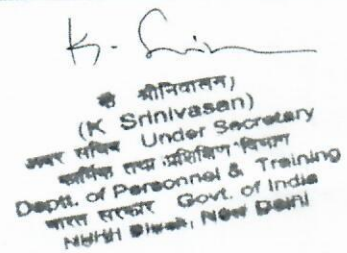 K. Srin
के श्रीनिवासन)
(K Srinivasan)
अवर सचिव Under Secretary
कार्मिक तथा प्रशिक्षण विभाग
Deptt. of Personnel & Training
भारत सरकार Govt. of India
New Delhi